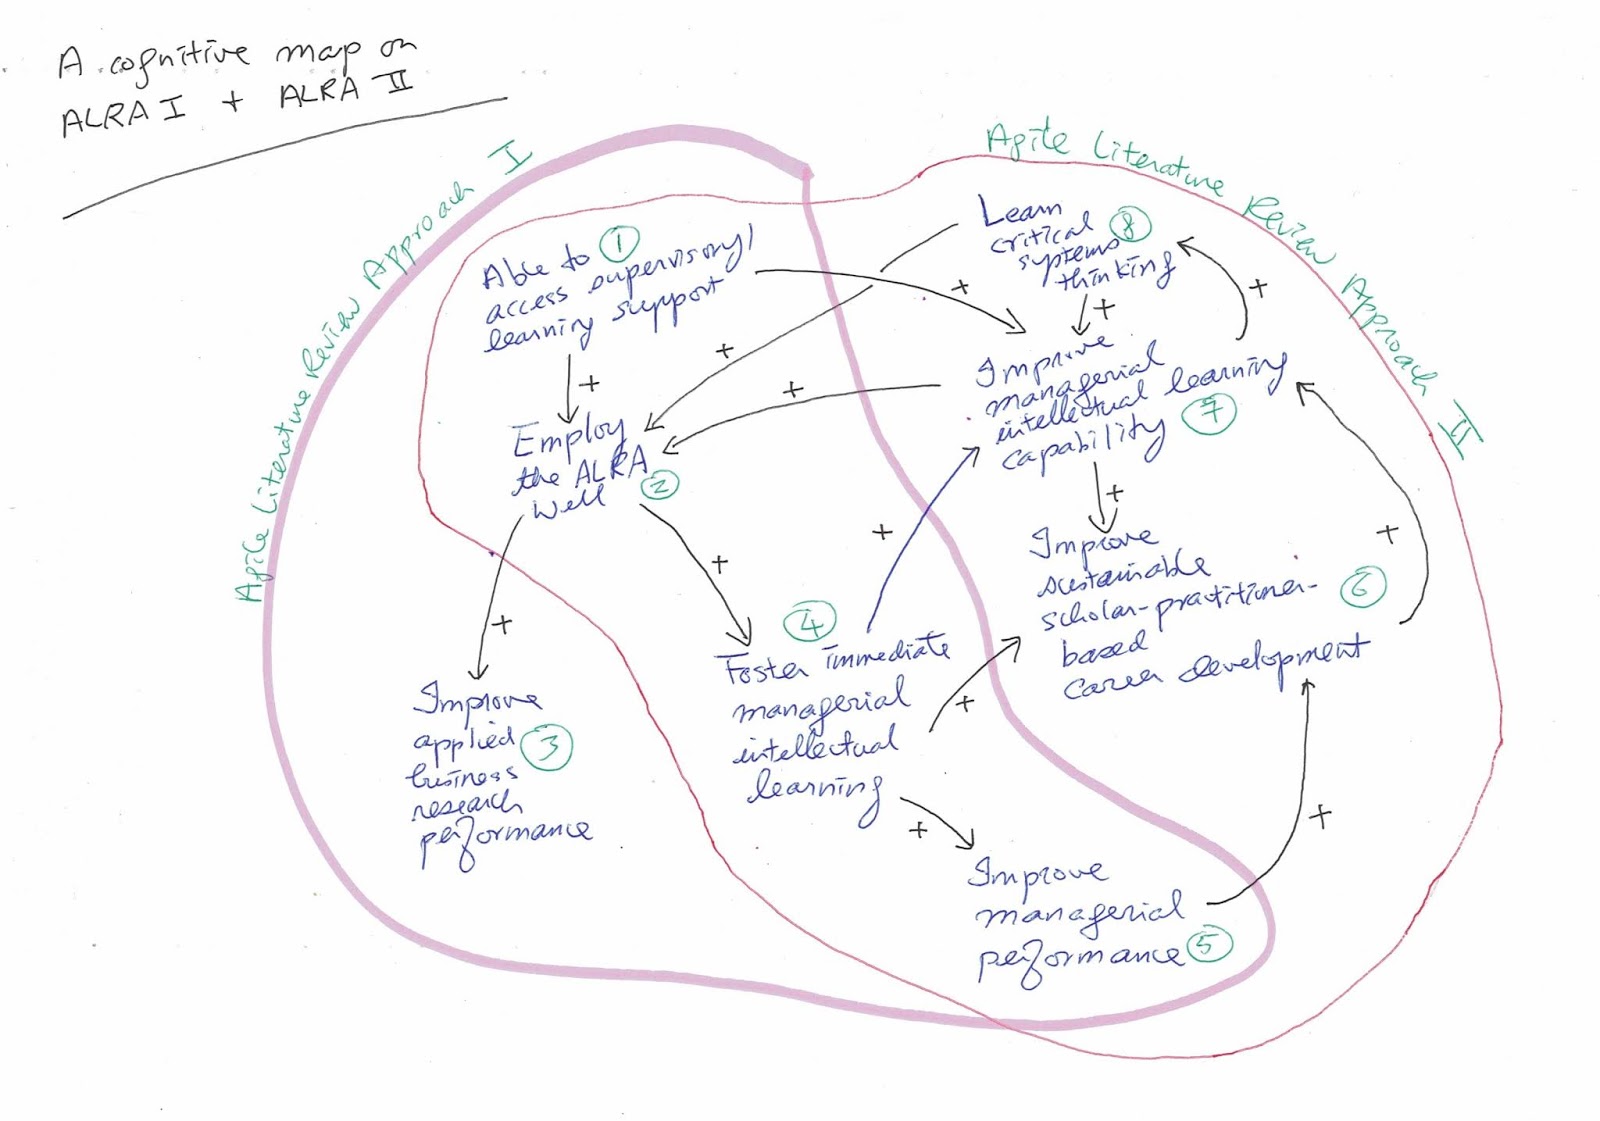 A cognitive map on
ALRA I + ALRA II
Agile Literature Review Approach I
Agile Literature Review Approach II
Able to ①
access supervisory/
learning support
+
Employ
the ALRA
well ②
+
Improve
applied ③
business
research
performance
+
④
Foster immediate
managerial
intellectual
learning
+
Improve
managerial
performance ⑤
+
Improve
sustainable
scholar-practitioner-
based ⑥
career development
+
+
+
Improve
managerial
intellectual learning
capability ⑦
+
+
+
Learn
critical ⑧
systems
thinking
+
+
+
+